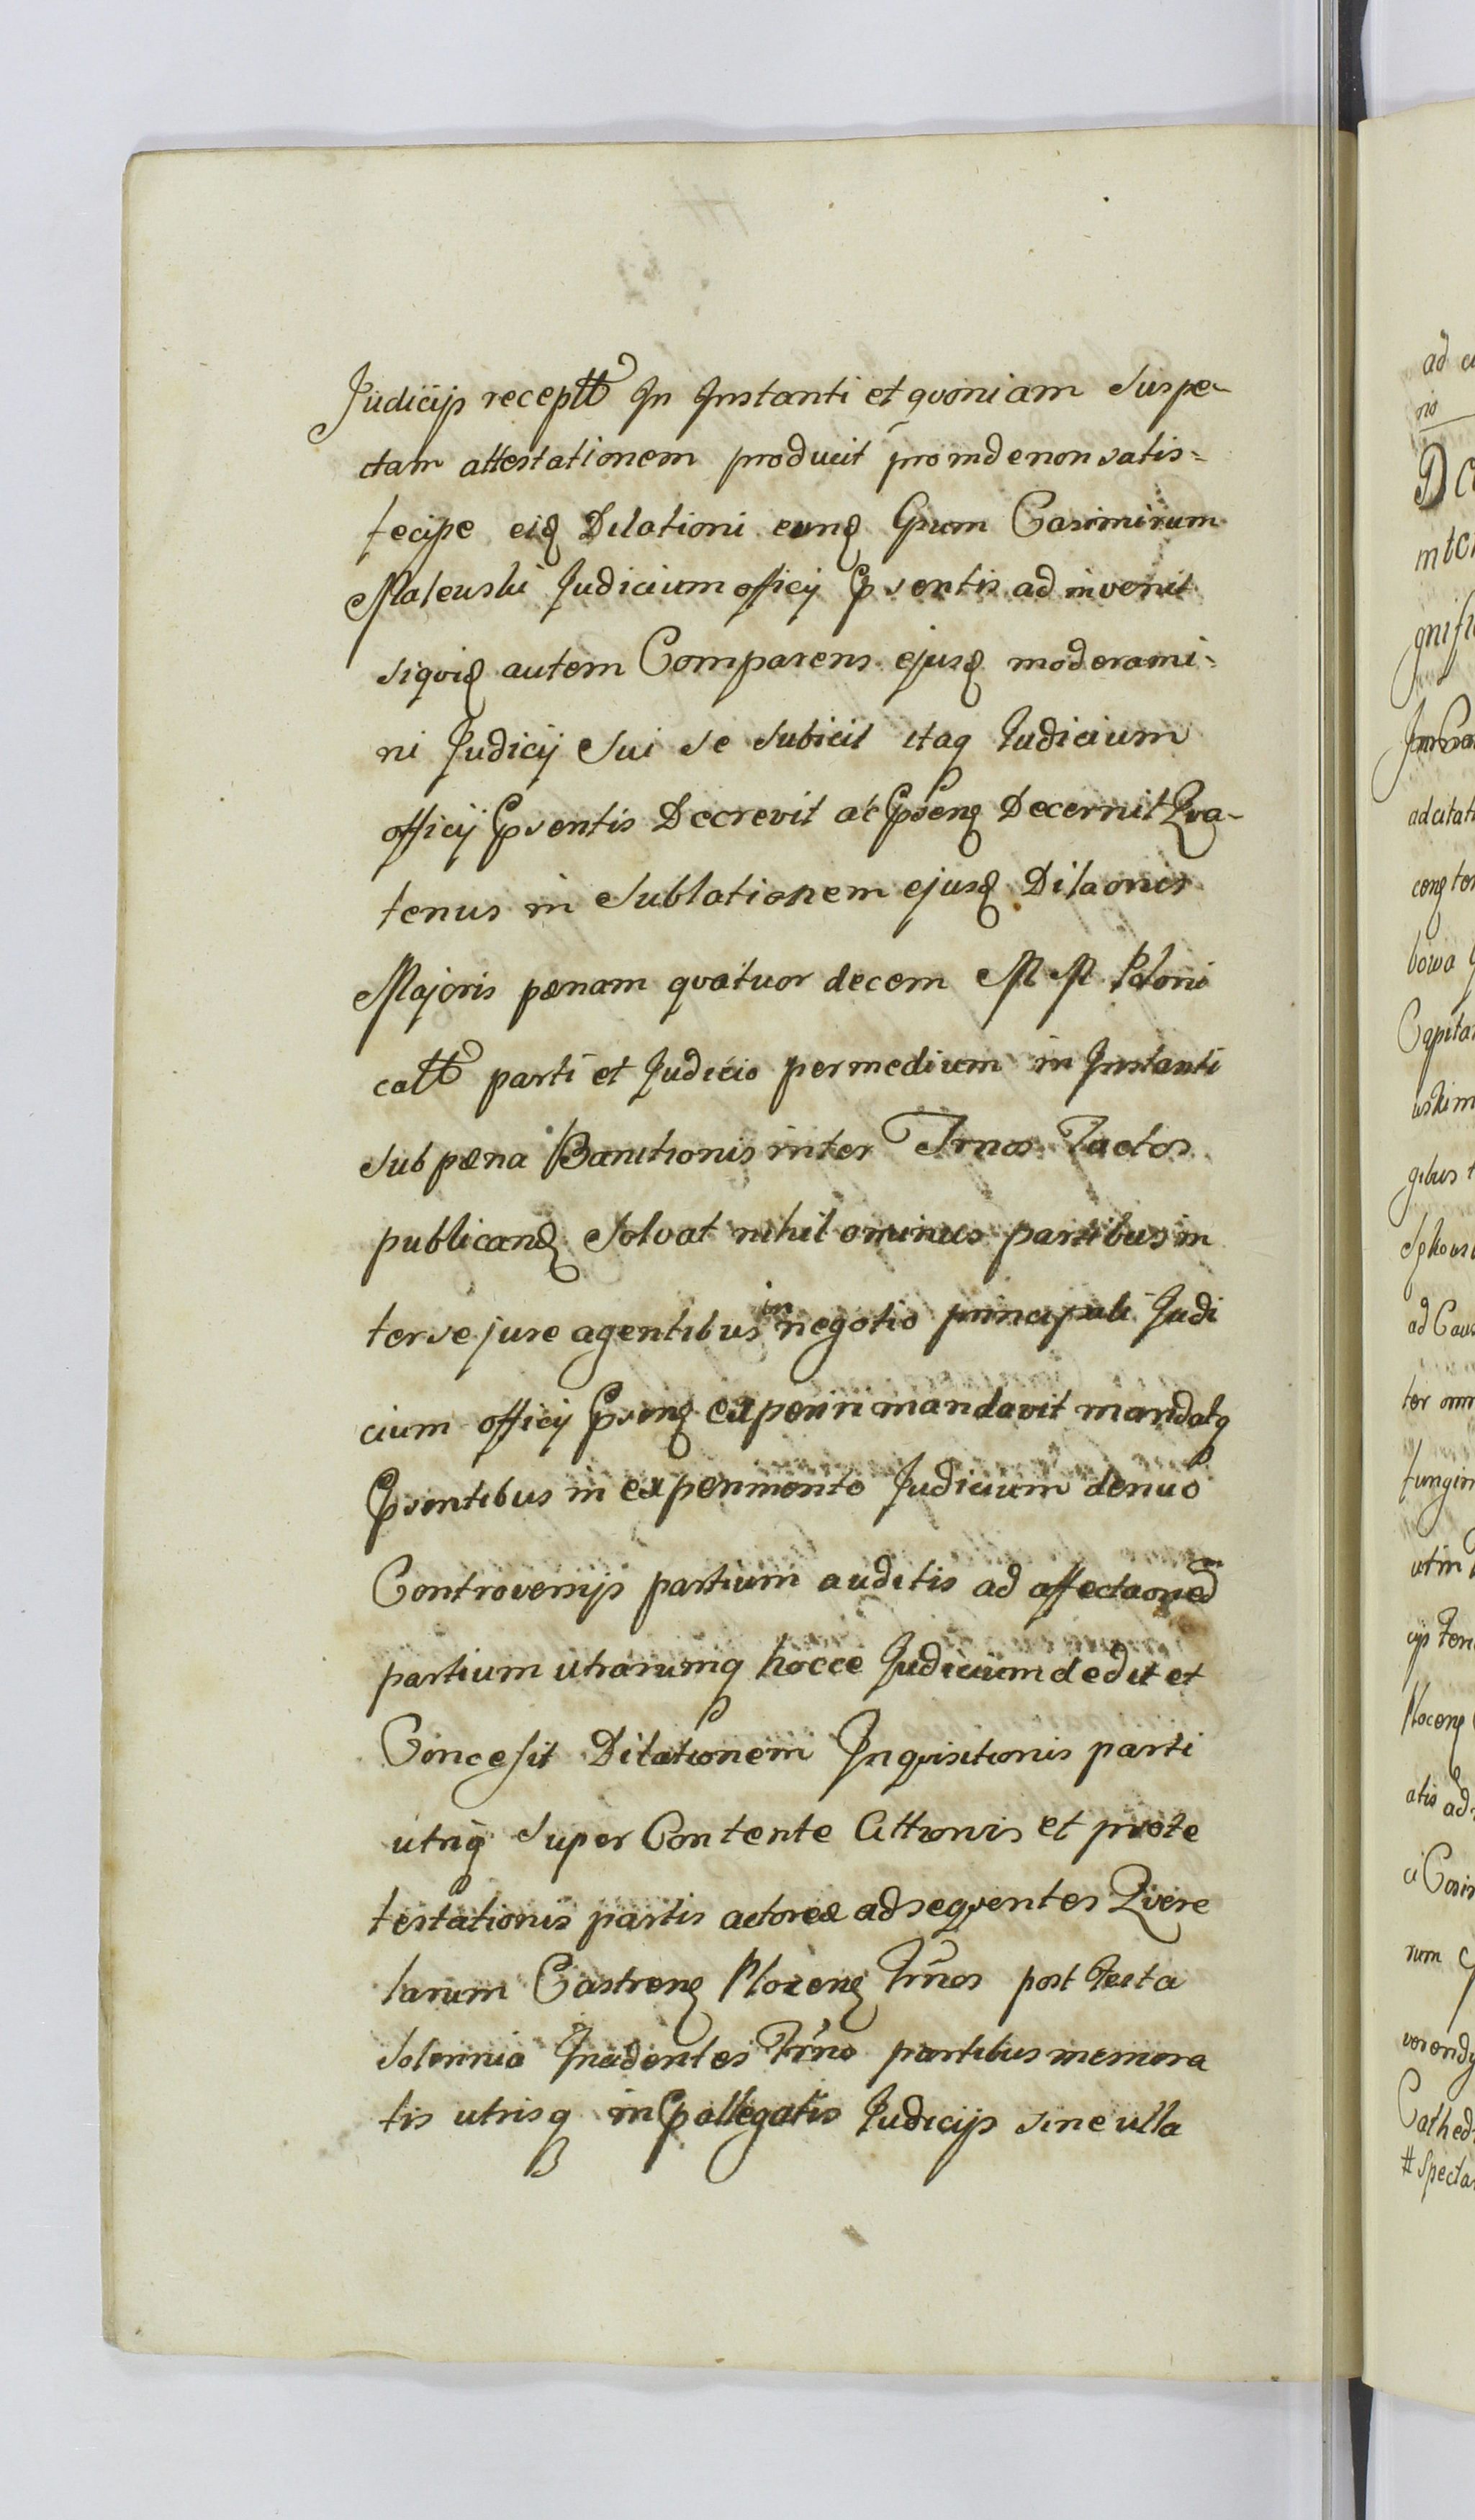 Judicijs receptt In Instanti et qvoniam suspe-
ctam attestationem producit proinde non satis=
fecipe eiq Dilationi eunq Gpum Casimirum
Mateuski Judicium officij Gpsentis ad invenit
siqviq autem Comparens ejusq moderami=
ni Judicij Sui se subicit itaq Judicium
officij Gpsentis Decrevit at Gpsenq Decernit Qva-
tenus in Sublationem ejusq Dilaonis
Majoris pænam qvatuor decem M M Poloni
catt parti et Judicio per medium in Instanti
sub pæna Banitionis inter Trnos Tactos
publicanq Solvat nihil ominus partibus in
ter se jure agentibus in negotio principali Judi
cium officij Gpsenq experiri mandavit mandatq
Gpsentibus in experimento Judicium denuo
Controversijs partium auditis ad affectaonem
partium utrarumq hocce Judicium dedit et
Concessit Dilationem Inqvisitionis parti
utriq super Contente Cittionis et prote
testationis partis actoreæ ad seqventes Qvere
larum Castrenq Plocenq Trnos post Festa
Solennia Incidentes Trno partibus memora
tis utrisq in Gpallegatis Judicijs sine ulla
ad
nis
gnifi
ad citat
bowa
Capita
uskim
gibus
ad Caus
ter omn
fungin
Plocenq
atis ad
rum
Cathed
# Specta